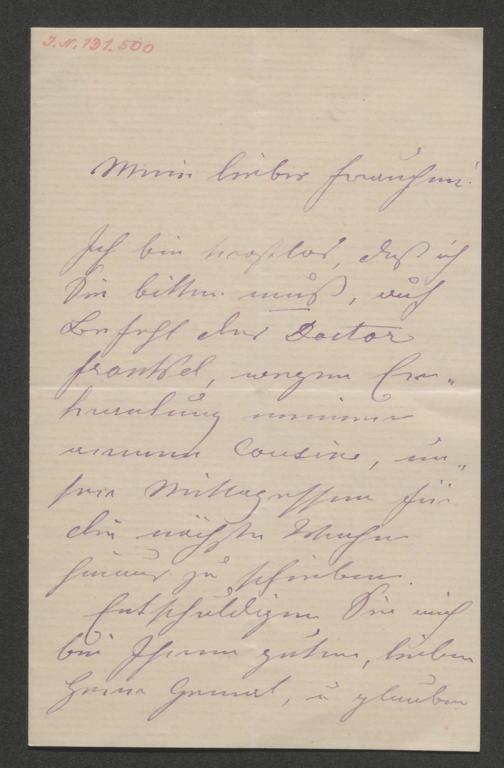 J.N. 131.500
Mein lieber Frauchen!
Ich bin trostlos, daß ich
Sie bitten muß, auf
Befehl des Doctor
wegen Er-
krankung meiner
armen Cousine, un-
ser Mittagessen für
die nächste Woche
hinaus zu schieben.
Entschuldigen Sie mich
bei Ihrem guten, lieben
Herrn Gemal, u glauben